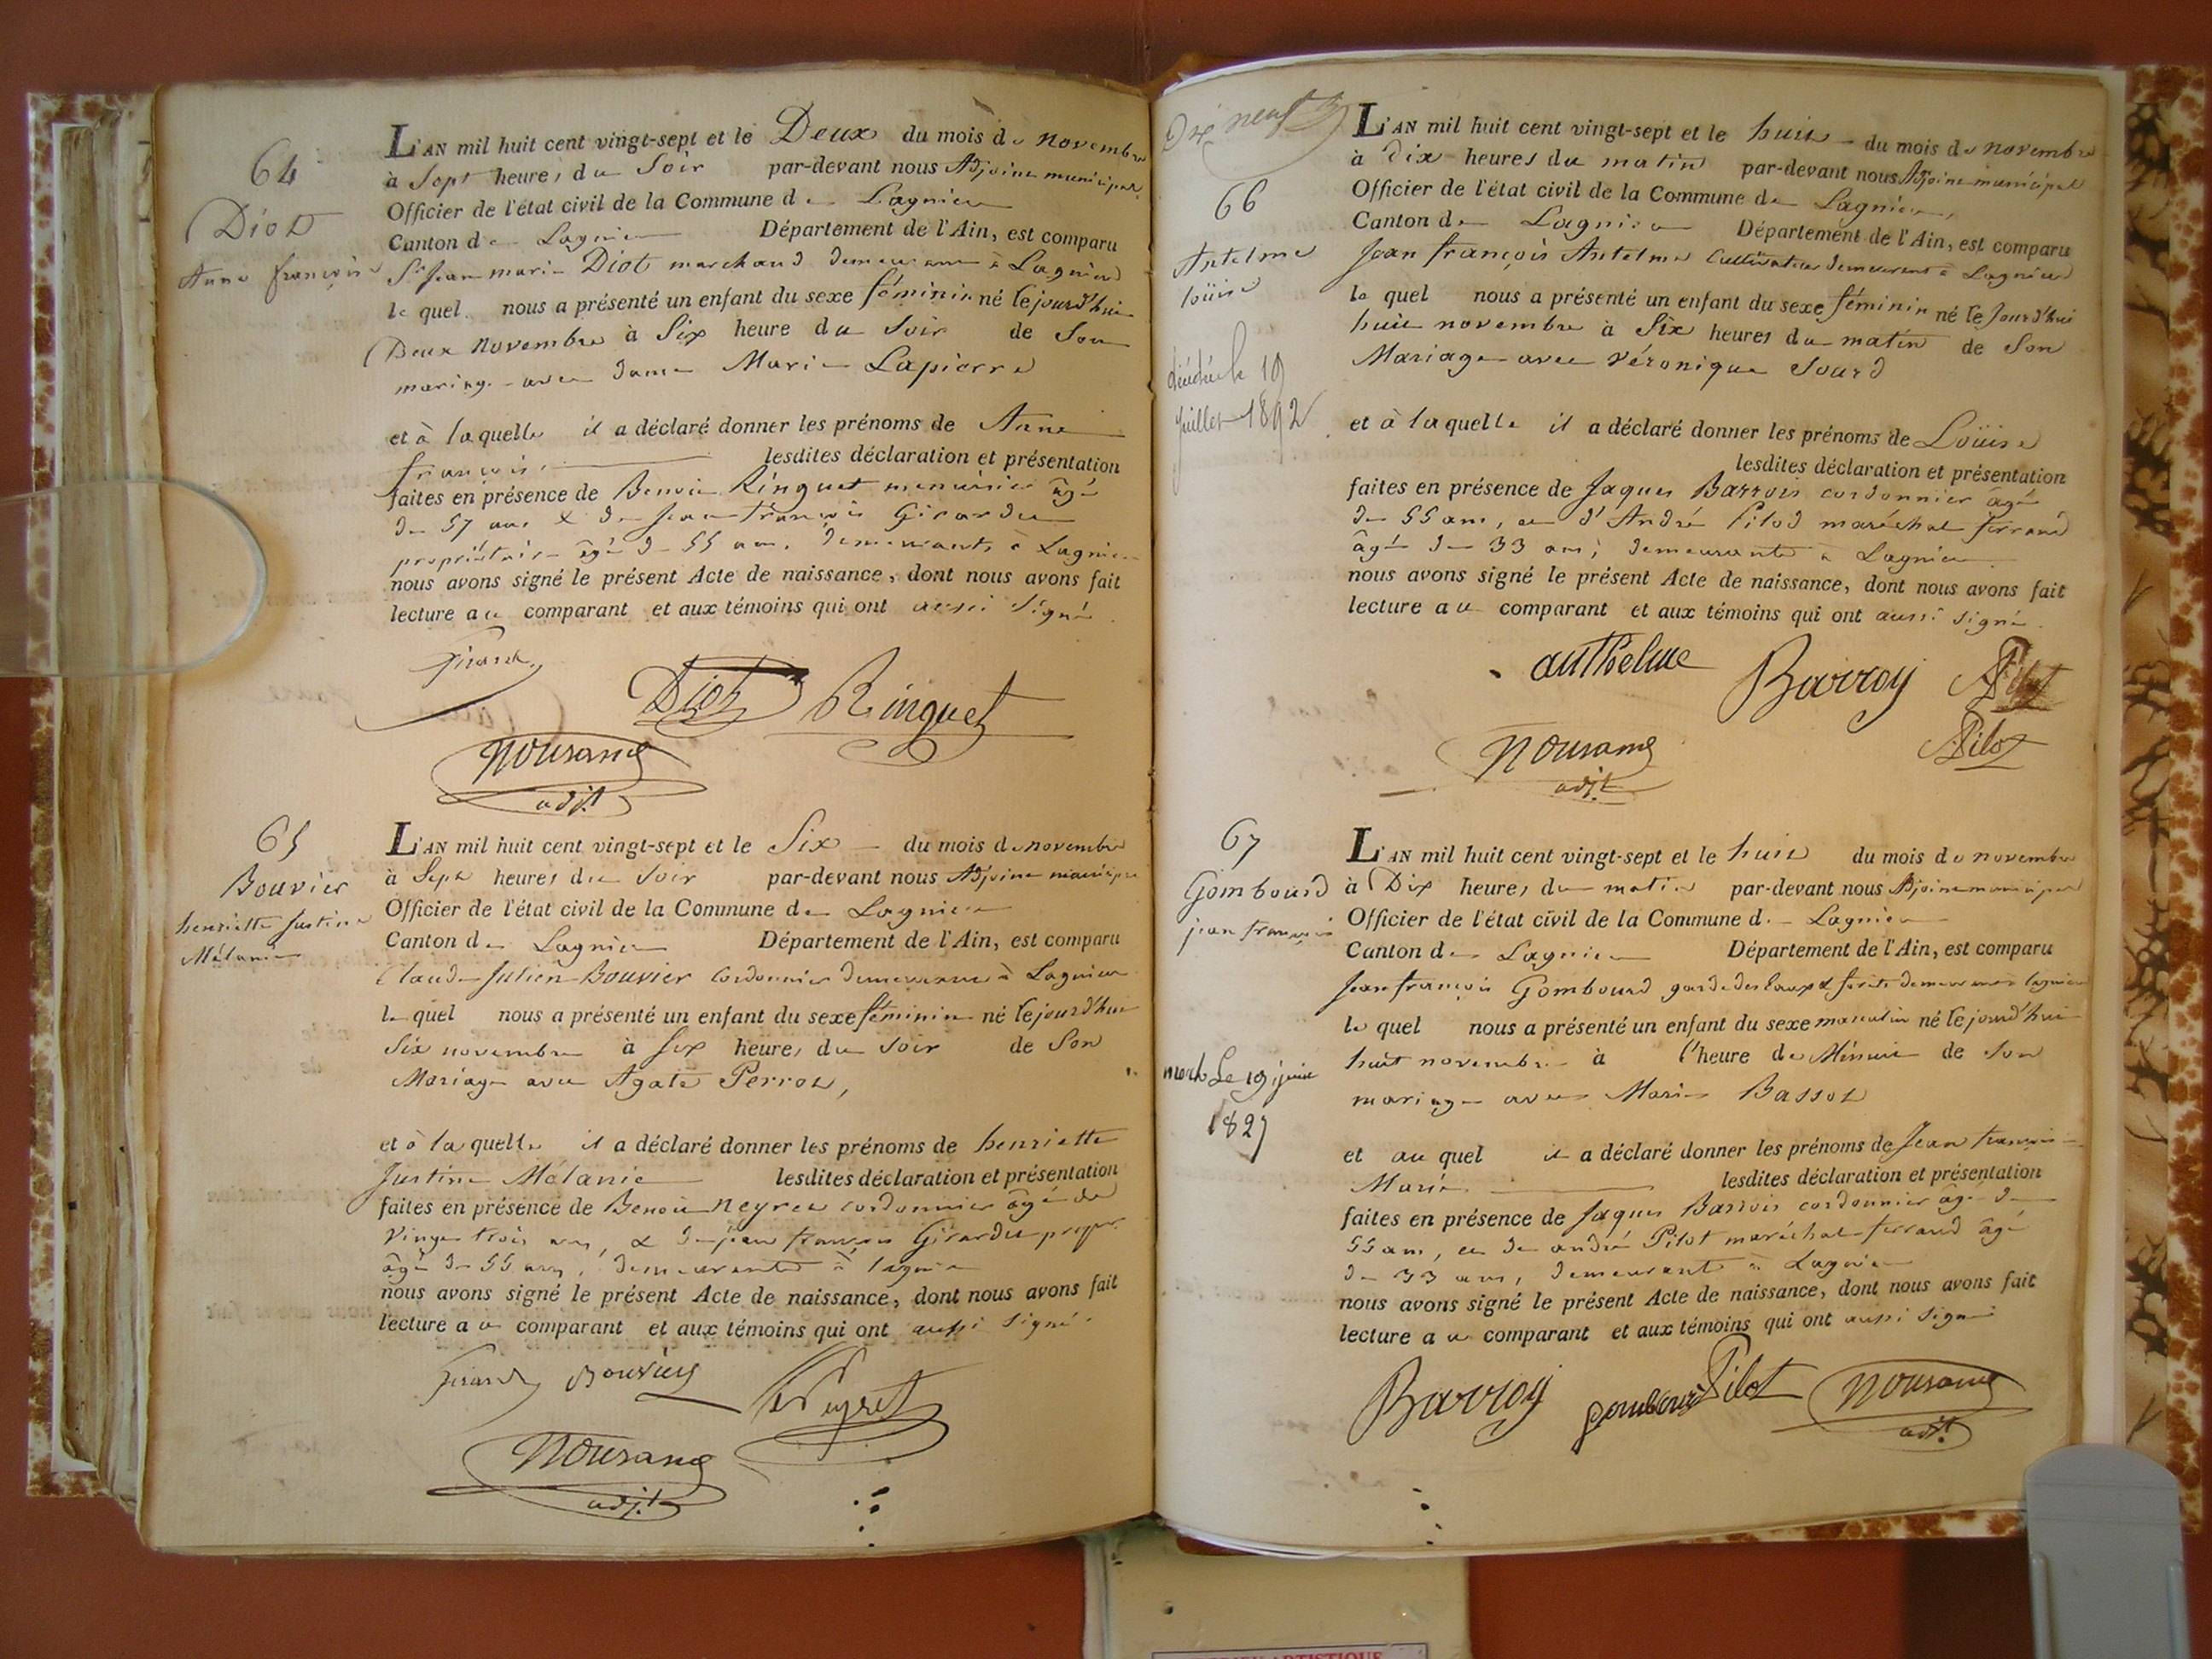 64
Diot
Anne françoise
L'AN mil huit cent vingt-sept et le Deux du mois de novembre
à Sept heures du Soir par-devant nous Adjoint municipal
Officier de l'état civil de la Commune de Lagnieu
Canton de Lagnieu Département de l'Ain, est comparu
Sr Jean marie Diot marchand demeurant à Lagnieu
le quel nous a présenté un enfant du sexe féminin né le jourd'hui
Deux Novembre à Six heure du Soir de Son
mariage avec dame Marie Lapierre
et à laquelle il a déclaré donner les prénoms de Anne
françoise lesdites déclaration et présentation
faites en présence de Benoit Ringuet menuisier âgé
de 57 ans & de jean françois Girardet
propriétaire âgé de 55 ans, demeurants à Lagnieu
nous avons signé le présent Acte de naissance, dont nous avons fait
lecture au comparant et aux témoins qui ont aussi signé.
Diot Ringuet
adjt
65
Bouvier
henriette justine
Mélanie
L'AN mil huit cent vingt-sept et le Six du mois de novembre
à Sept heures du Soir par-devant nous Adjoint municipal
Officier de l'état civil de la Commune de Lagnieu
Canton de Lagnieu Département de l'Ain, est comparu
Claude Julien Bouvier Cordonnier demeurant à Lagnieu
le quel nous a présenté un enfant du sexe féminin né le jourd'hui
Six novembre à six heures du Soir de Son
Mariage avec Agate Perrot,
et à laquelle il a déclaré donner les prénoms de henriette
Justine Mélanie lesdites déclaration et présentation
faites en présence de Benoit neyret cordonnier âgé de
Vingt trois ans, & de jean françois Girardet propre
âgé de 55 ans, demeurants à lagnieu
nous avons signé le présent Acte de naissance, dont nous avons fait
lecture au comparant et aux témoins qui ont aussi signé.
Bouvier Neyret
adjt
Dix neuf
66
Antelme
loüise
décédée le 19
juillet 1892
L'AN mil huit cent vingt-sept et le huit du mois de novembre
à dix heures du matin par-devant nous Adjoint municipal
Officier de l'état civil de la Commune de Lagnieu,
Canton de Lagnieu Département de l'Ain, est comparu
Jean françois Antelme Cultivateur demeurant à Lagnieu
le quel nous a présenté un enfant du sexe féminin né le jourd'hui
huit novembre à Six heures du matin de Son
Mariage avec Véronique Sourd
et à laquelle il a déclaré donner les prénoms de Loüise
lesdites déclaration et présentation
faites en présence de Jaques Barrois cordonnier agé
de 55 ans, et d'André Pilod maréchal ferrand
âgé de 33 ans, demeurants à Lagnieu
nous avons signé le présent Acte de naissance, dont nous avons fait
lecture au comparant et aux témoins qui ont aussi signé.
anthelme Barroy
Pilot
adjt
67
Gombourd
jean françois
mort Le 19 juin
1827
L'AN mil huit cent vingt-sept et le huit du mois de novembre
à Dix heures du matin par-devant nous Adjoint municipal
Officier de l'état civil de la Commune de Lagnieu
Canton de Lagnieu Département de l'Ain, est comparu
Jean françois Gombourd garde des Eaux & forêts demeurant à lagnieu
le quel nous a présenté un enfant du sexe masculin né le jourd'hui
huit novembre à l'heure de Minuit de Son
mariage avec Marie Bassot
et au quel il a déclaré donner les prénoms de Jean françois
Marie lesdites déclaration et présentation
faites en présence de Jaques Barrois cordonnier âgé de
55 ans, et de andré Pilot maréchal ferrand âgé
de 33 ans, demeurants à Lagnieu
nous avons signé le présent Acte de naissance, dont nous avons fait
lecture au comparant et aux témoins qui ont aussi signé
Barroy Pilot
adjt